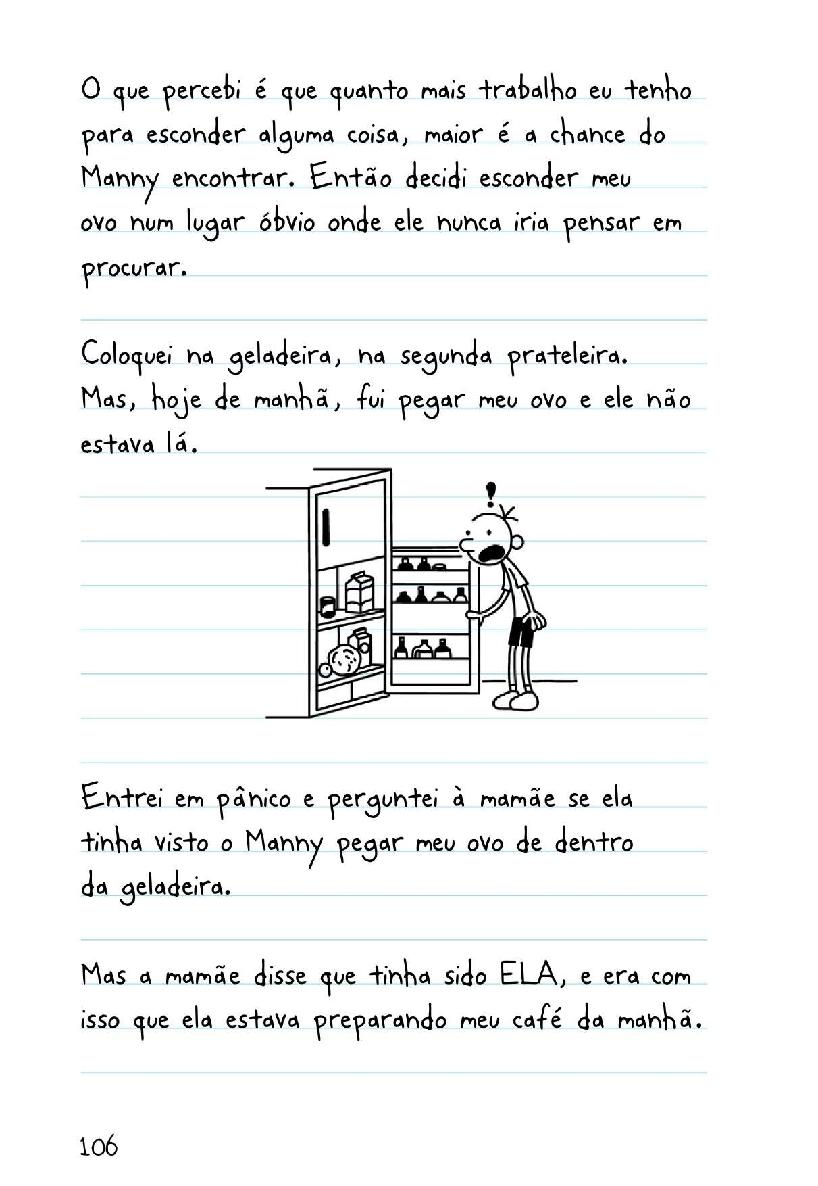 O que percebi é que quanto mais trabalho eu tenho
para esconder alguma coisa, maior é a chance do
Manny encontrar. Então decidi esconder meu
ovo num lugar óbvio onde ele nunca iria pensar em
procurar.
Coloquei na geladeira, na segunda prateleira.
Mas, hoje de manhã, fui pegar meu ovo e ele não
estava lá.
!
Entrei em pânico e perguntei à mamãe se ela
tinha visto o Manny pegar meu ovo de dentro
da geladeira.
Mas a mamãe disse que tinha sido ELA, e era com
isso que ela estava preparando meu café da manhã.
106